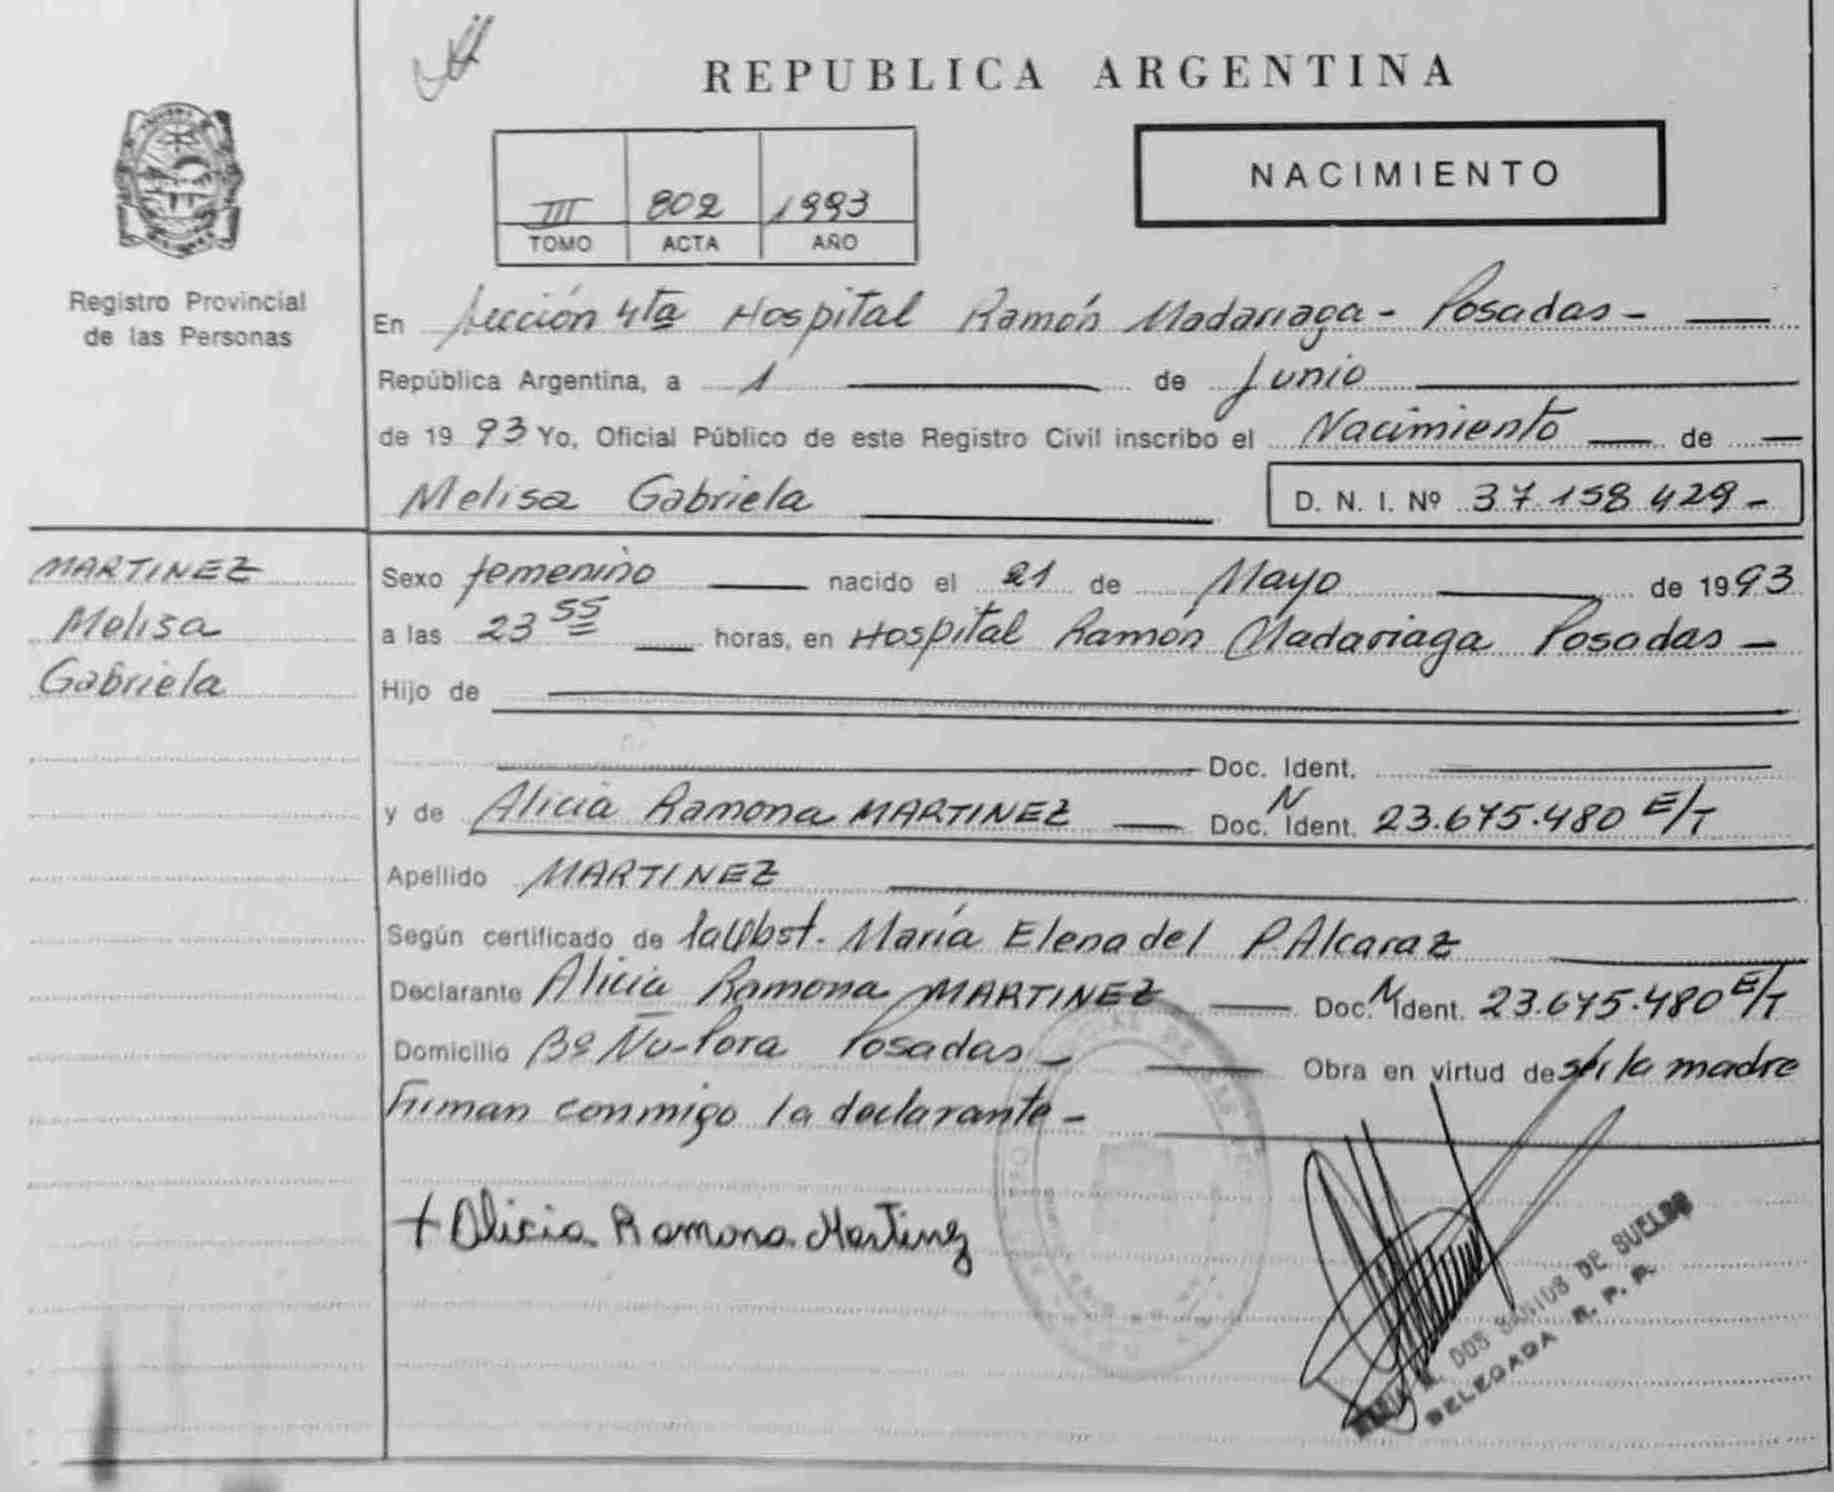 REPUBLICA ARGENTINA
NACIMIENTO
III 802 1993
TOMO ACTA AÑO
Registro Provincial
de las Personas
En Sección 4ta Hospital Ramón Madariaga - Posadas -
República Argentina, a 1 de Junio
de 19 93 Yo, Oficial Público de este Registro Civil inscribo el Nacimiento de
Melisa Gabriela D. N. I. Nº 37.158.429-
MARTINEZ
Melisa
Gabriela
Sexo femenino nacido el 21 de Mayo de 1993
a las 23 55 horas, en Hospital Ramón Madariaga Posadas -
Hijo de
Doc. Ident.
y de Alicia Ramona MARTINEZ Doc. N Ident. 23.675.480 E/T
Apellido MARTINEZ
Según certificado de la Obst. María Elena del P. Alcaraz
Declarante Alicia Ramona MARTINEZ Doc. N Ident. 23.675.480 E/T
Domicilio Bº Ñu-Pora Posadas - Obra en virtud de ser la madre
Firman conmigo la declarante -
+ Alicia Ramona Martinez
DOS SANTOS DE SUELDO
DELEGADA R. P. P.